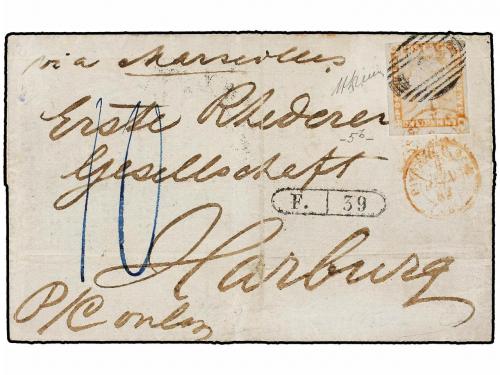 via Marseilles
10
Erste Rhederei
- 56 -
Gesellschaft
F. 39
Harburg
P/C